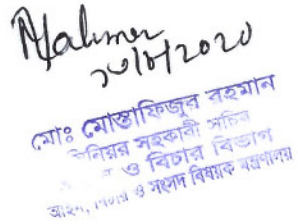 ১৮/৮/2020
মোঃ মোস্তাফিজুর রহমান
সিনিয়র সহকারী সচিব
ও বিচার বিভাগ
আইন, বিচার ও সংসদ বিষয়ক মন্ত্রণালয়